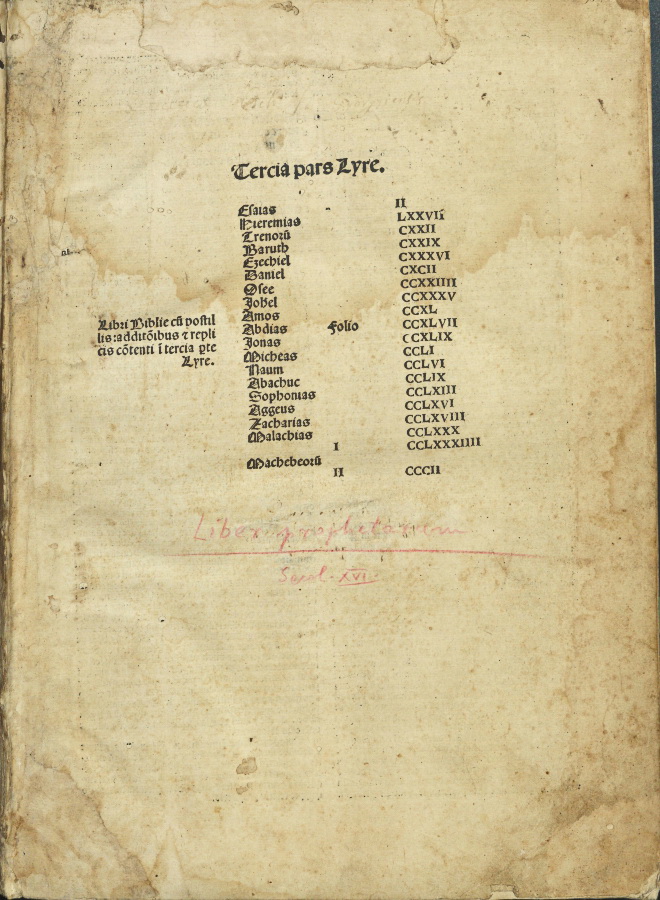 Tercia pars Lyre.
Esaias II
Hieremias LXXVII
Trenorũ CXXII
Baruth CXXIX
Ezechiel CXXXVI
Daniel CXCII
Osee CCXXIIII
Johel CCXXXV
Amos CCXL
Abdias Folio CCXLVII
Jonas CCXLIX
Micheas CCLI
Naum CCLVI
Abachuc CCLIX
Sophonias CCLXIII
Aggeus CCLXVI
Zacharias CCLXVIII
Malachias CCLXXX
I CCLXXXIIII
Machebeorũ
II CCCII
Libri Biblie cũ postil
lis: additõibus ⁊ repli
cis cõtenti ĩ tercia p̱te
Lyre.
Liber prophetarum
Saecl. XVI.